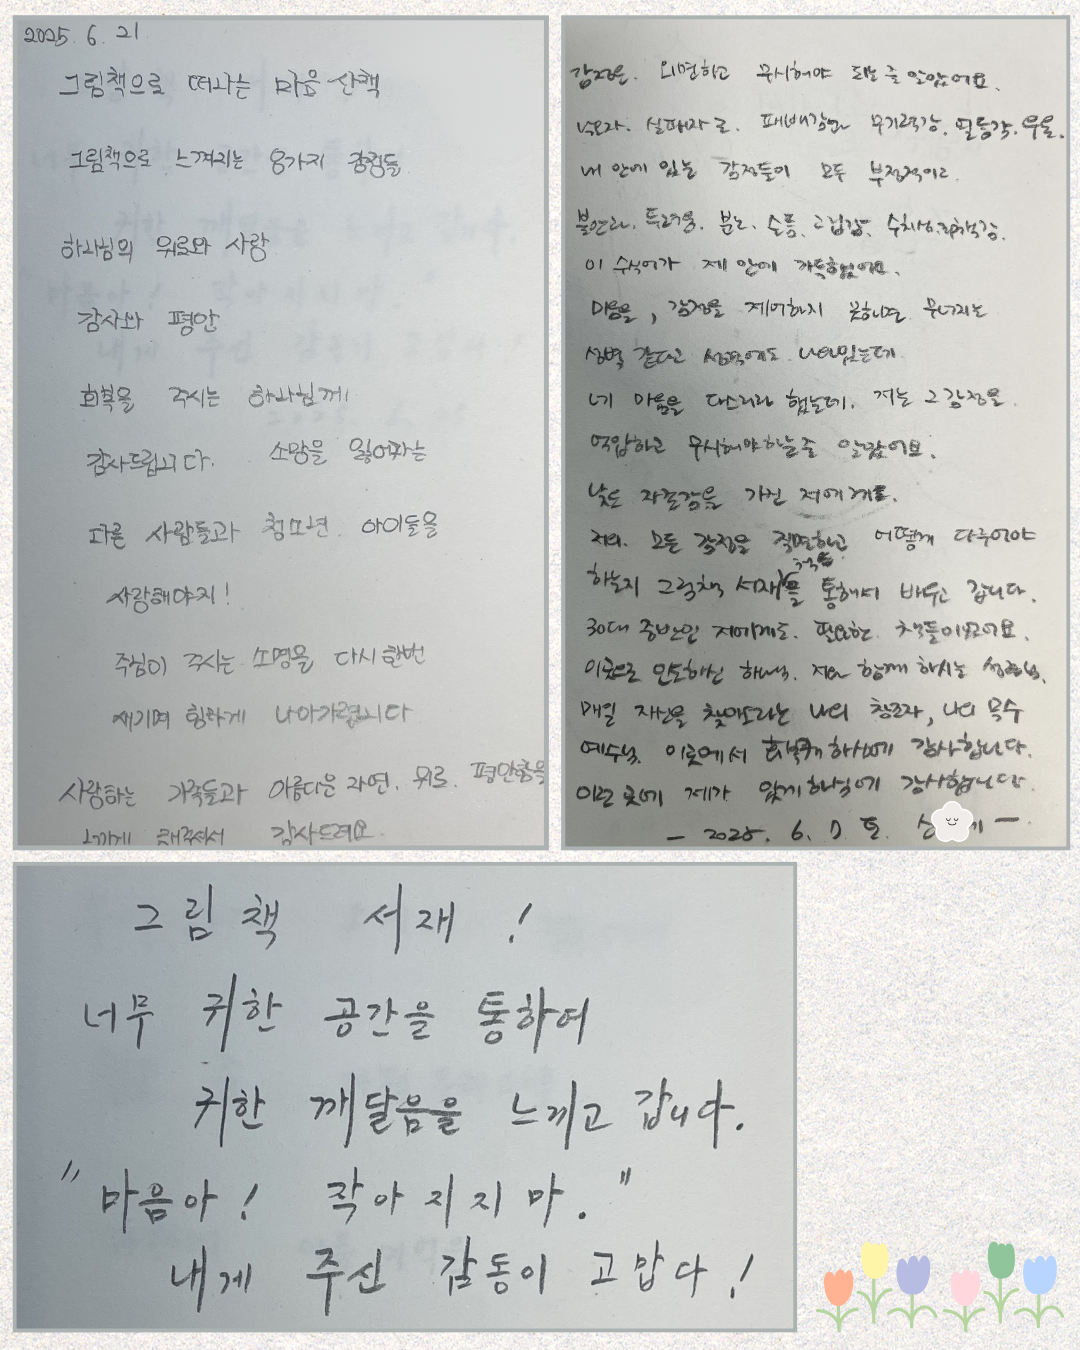 2025. 6. 21
그림책으로 떠나는 마음 산책
그림책으로 느껴지는 8가지 감정들
하나님의 위로와 사랑
감사와 평안
회복을 주시는 하나님께!
감사드립니다. 소망을 잃어가는
다른 사람들과 청소년. 아이들을
사랑해야지!
주님이 주시는 소명을 다시 한번
새기며 힘차게 나아가렵니다
사랑하는 가족들과 아름다운 자연. 위로. 평안함을
느끼게 해주셔서 감사드려요.
감정은. 외면하고 무시해야 되는 줄 알았어요.
낙오자. 실패자로. 패배감과 무기력감. 열등감. 우울.
내 안에 있는 감정들이 모두 부정적이고
불안과. 두려움. 분노. 슬픔. 고립감. 수치심.
이 수식어가 제 안에 가득했었어요.
마음을, 감정을 제어하지 못하면 무너지는
성벽 같다고 성경에도 나와있는데
네 마음을 다스리라 했는데. 저는 그 감정을
억압하고 무시해야하는줄 알았어요.
낮은 자존감을 가진 저에게.
저의. 모든 감정을 직면하고 어떻게 다루어야
하는지 그림책 서재를 통해서 배우고 갑니다.
30대 중반인 저에게도. 필요한 책들이었어요.
이곳으로 인도하신 하나님. 저와 함께 하시는 성령님.
매일 자신을 찾으라는 나의 창조자, 나의 목수
예수님. 이곳에서 회복케 하심에 감사합니다.
이런 곳에 제가 있게하심에 감사합니다.
- 2025. 6. 7 토.
그림책 서재!
너무 귀한 공간을 통하여
귀한 깨달음을 느끼고 갑니다.
"마음아! 작아지지마."
내게 주신 감동이 고맙다!